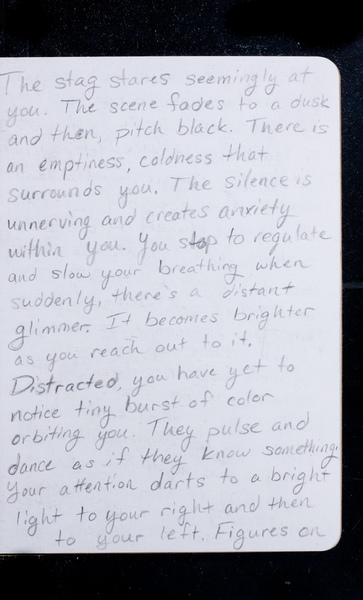 The stag stares seemingly at
you. The scene fades to a dusk
and then, pitch black. There is
an emptiness, coldness that
surrounds you. The silence is
unnerving and creates anxiety
within you. You stop to regulate
and slow your breathing when
suddenly, there's a distant
glimmer. It becomes brighter
as you reach out to it.
Distracted, you have yet to
notice tiny burst of color
orbiting you. They pulse and
dance as if they know something.
Your attention darts to a bright
light to your right and then
to your left. Figures on